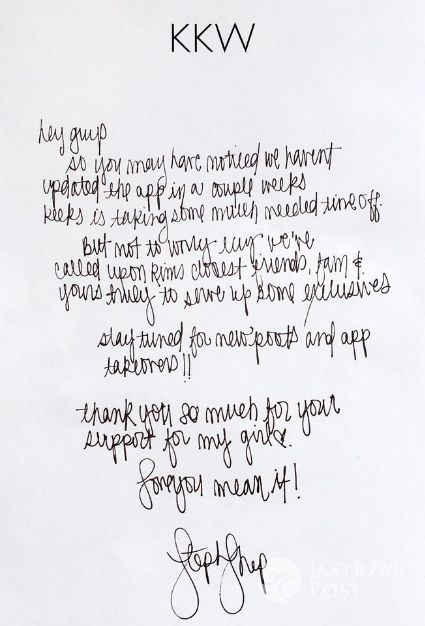 KKW
hey guys
so you may have noticed we havent
updated the app in a couple weeks
keeks is taking some much needed time off.
But not to worry cuz we've
called upon kims closest friends, fam &
yours truly to serve up some exclusives
stay tuned for new posts and app
takeovers!!
thank you so much for your
support for my girl
love you mean it!
Steph Shep
JASTRZĄB
POST